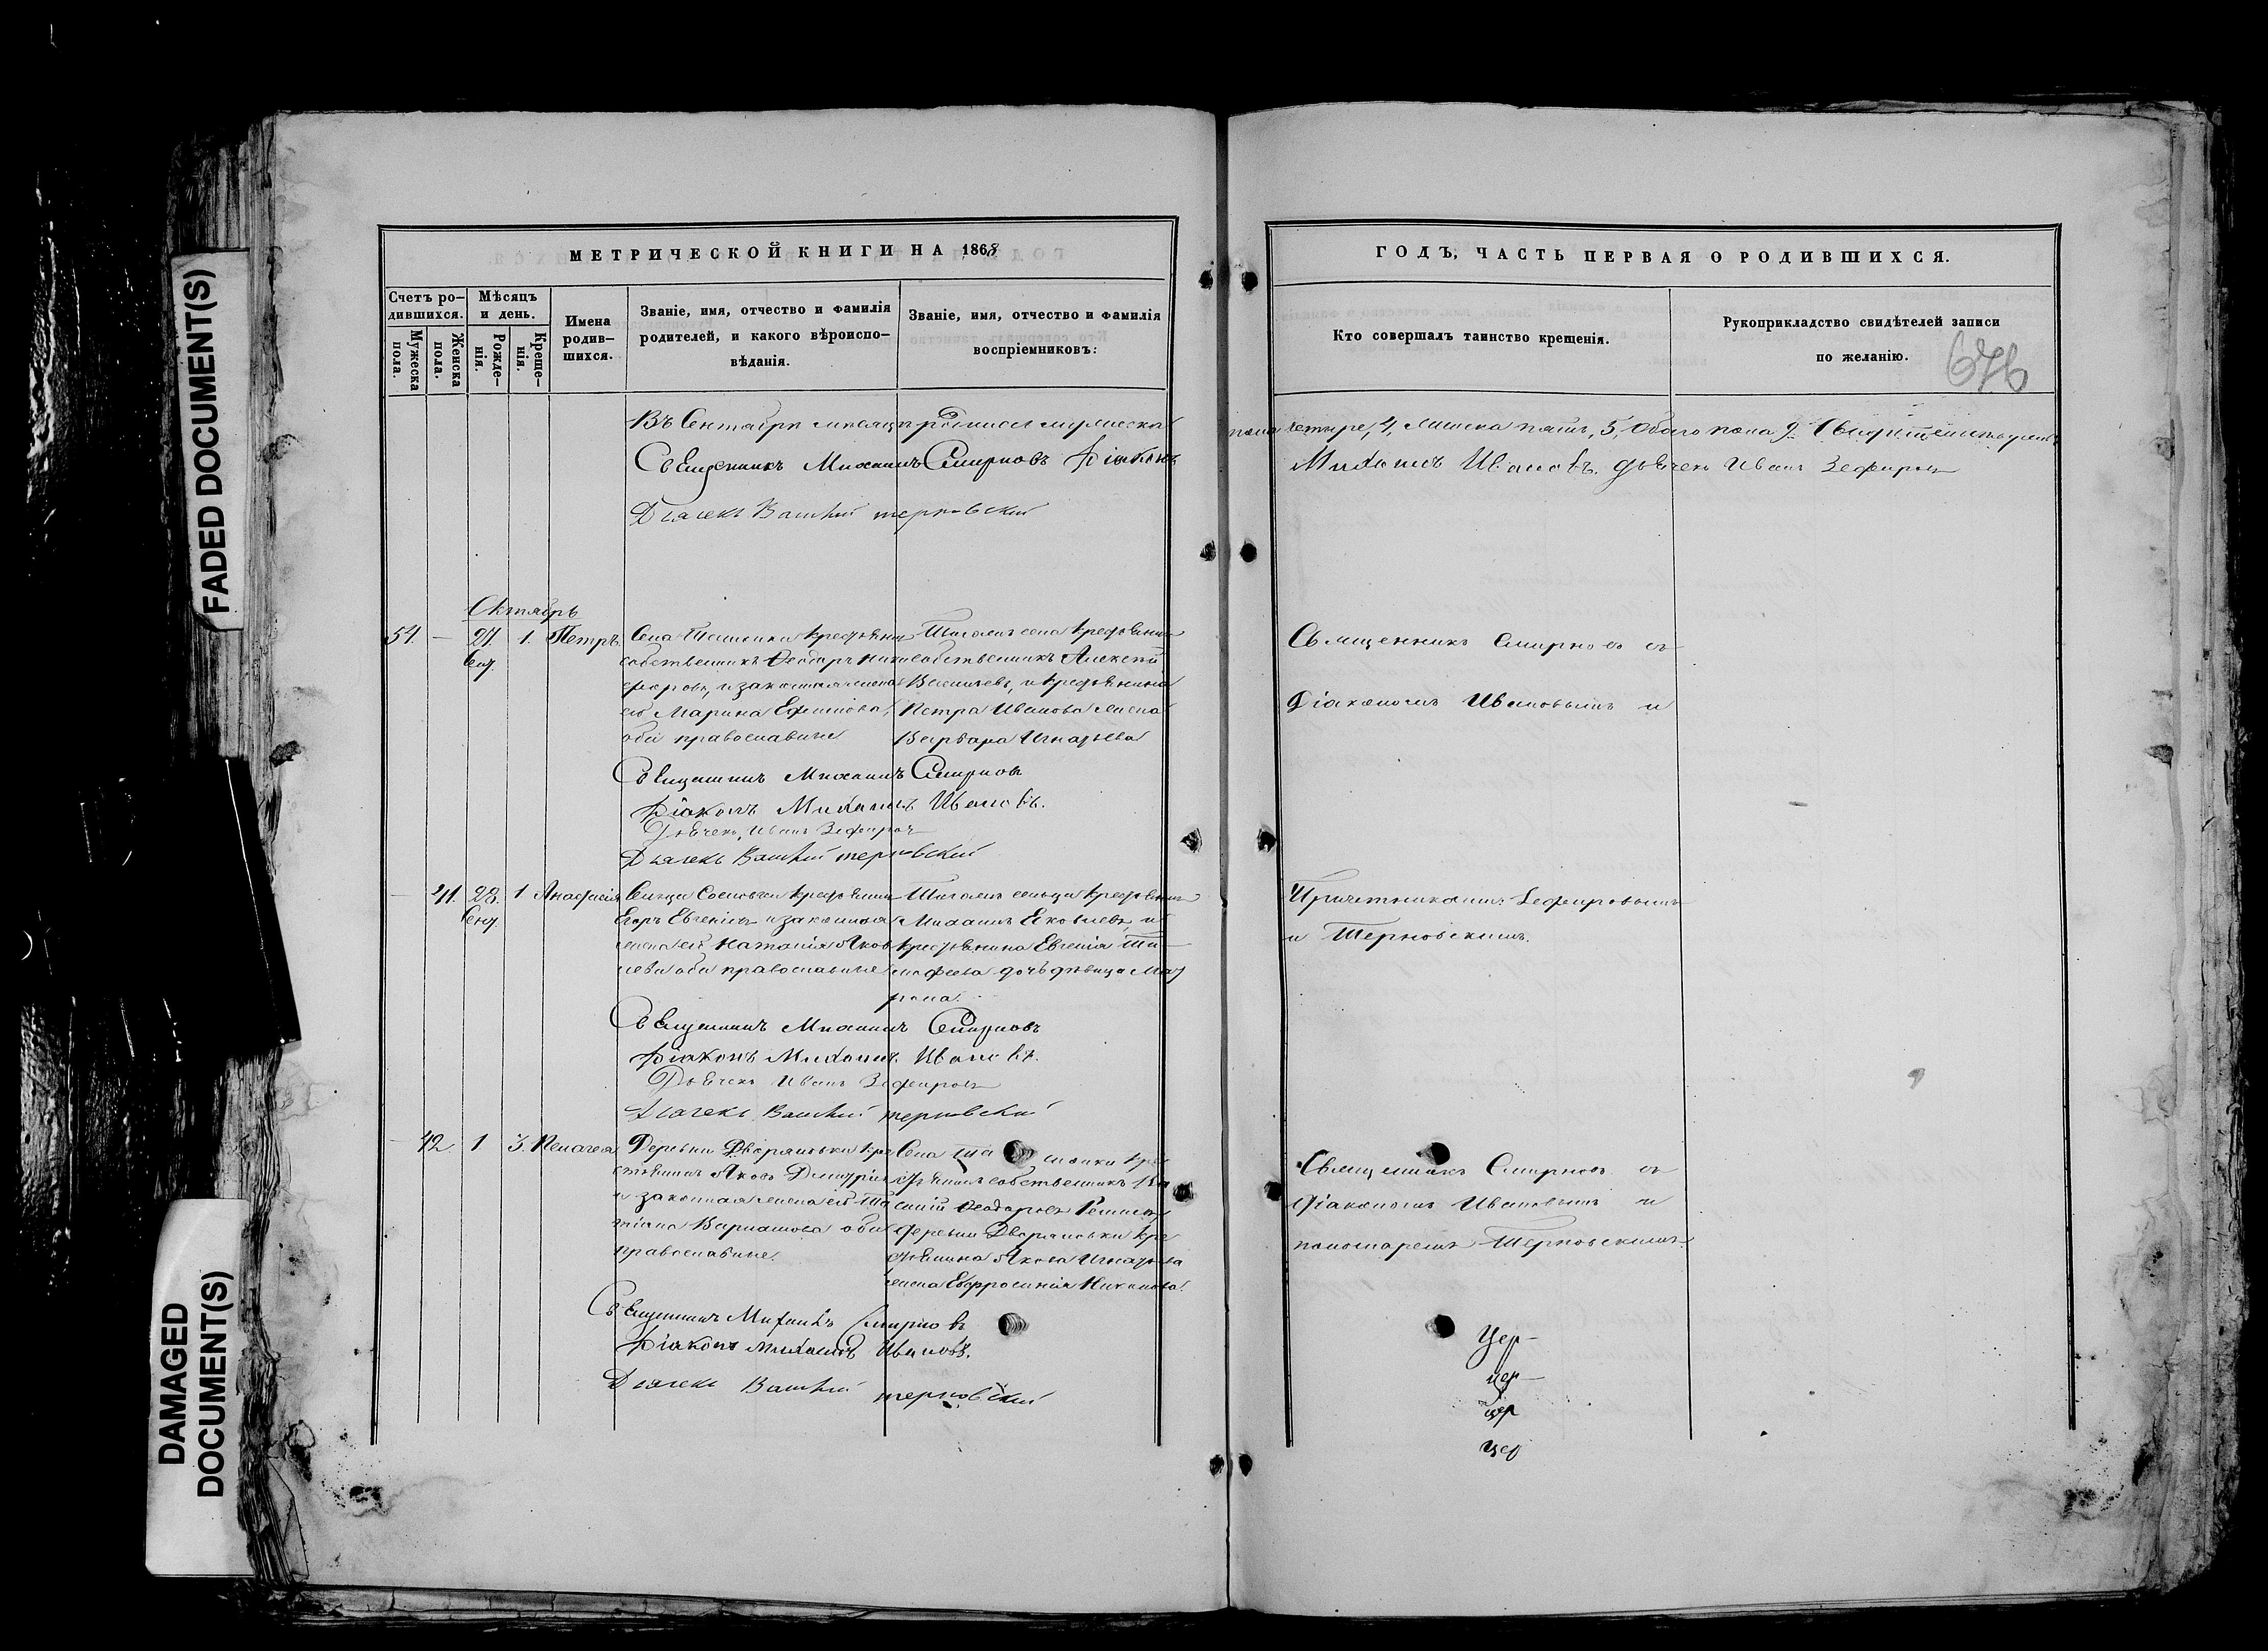 FADED DOCUMENT(S)
DAMAGED DOCUMENT(S)
МЕТРИЧЕСКОЙ КНИГИ НА 1868
Счетъ родившихся.
Мужеска пола.
Женска пола.
Мѣсяцъ и день.
Рожденія.
Крещенія.
Имена родившихся.
Званіе, имя, отчество и фамилія
родителей, и какого вѣроиспо-
вѣданія.
Званіе, имя, отчество и фамилія
воспріемниковъ:
Въ Сентябрѣ мѣсяцѣ родилося мужеска
Священникъ Михаилъ Смирновъ Діаконъ
Дьячекъ Василій терновский
Октябрь
51. — 27. Сен. 1. Петръ.
крестьянинъ
собственникъ Ѳеодоръ Ники
форовъ, и законная жена
его Марина Ефимова,
оба православные
села крестьянинъ
собственникъ Алексѣй
Васильевъ, и крестьянина
Петра Иванова жена
Варвара Игнатьева
Священникъ Михаилъ Смирновъ
Діаконъ Михаилъ Ивановъ.
Дьячекъ Иванъ Зефировъ
Дьячекъ Василій терновский
— 41. 28. Сен. 1
Сельца крестьянинъ
Егоръ Евгеніевъ и законная
жена его Наталія Яков
лева оба православные
сельца крестьянинъ
Михаилъ Яковлевъ, и
крестьянина Евгенія Ти
мофеева дочь дѣвица Мат
рона.
Священникъ Михаилъ Смирновъ
Діаконъ Михаилъ Ивановъ.
Дьячекъ Иванъ Зефировъ
Дьячекъ Василій терновский
— 42 1 3. Пелагея
Деревни Дворяновки кре
стьянинъ Яковъ Димитріевъ
и законная жена его Та
тіана Варламова оба
православные.
Села кре
стьянинъ собственникъ Ва
силій Ѳеодоровъ
деревни Дворяновки кре
стьянина Якова Игнатьева
жена Евфросинія
Священникъ Михаилъ Смирновъ
Діаконъ Михаилъ Ивановъ.
Дьячекъ Василій терновский
ГОДЪ, ЧАСТЬ ПЕРВАЯ О РОДИВШИХСЯ.
Кто совершалъ таинство крещенія.
Рукоприкладство свидѣтелей записи
по желанію.
676
пола четыре, 4, женска пять, 5, обаго пола 9.
Михаилъ Ивановъ. дьячекъ Иванъ Зефировъ
Священникъ Смирновъ съ
Діакономъ Ивановымъ и
Причетниками: Зефировымъ
и Терновскимъ.
Священникъ Смирновъ съ
Діакономъ Ивановымъ и
пономаремъ Терновскимъ.
Цер-
цер-
цер
цер